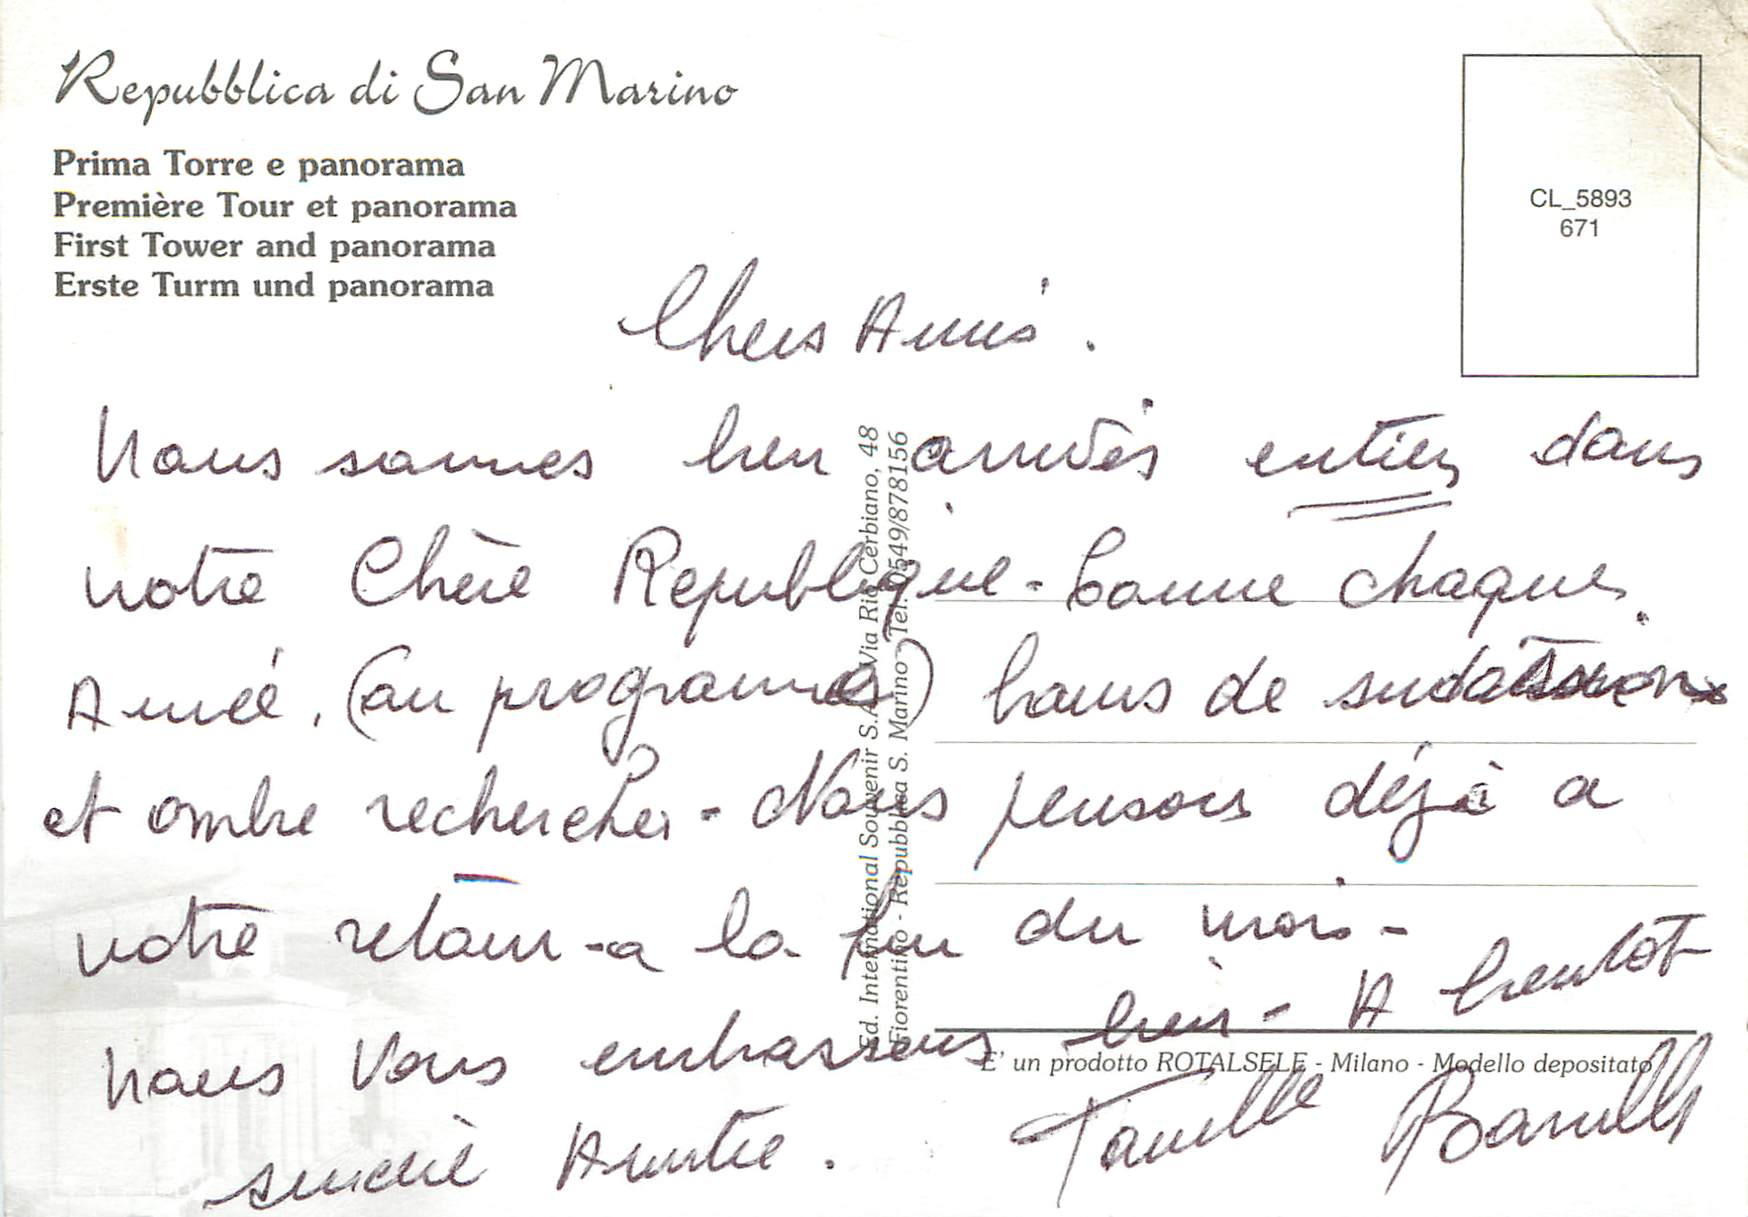 Repubblica di San Marino
Prima Torre e panorama
Première Tour et panorama
First Tower and panorama
Erste Turm und panorama
CL_5893
671
Chers Amis.
Nous sommes bien arrivés entiers dans
notre Chère Republique - Comme chaque
Année, (au programme) bains de
et ombre rechercher - Nous pensons déjà a
notre retour - a la fin du mois -
nous Vous embrassons bien - A bientot
sincere Amitie. Famille
Ed. International Souvenir S.A. Via Rio Cerbiano, 48
Fiorentino - Repubblica S. Marino - Tel. 0549/878156
E' un prodotto ROTALSELE - Milano - Modello depositato